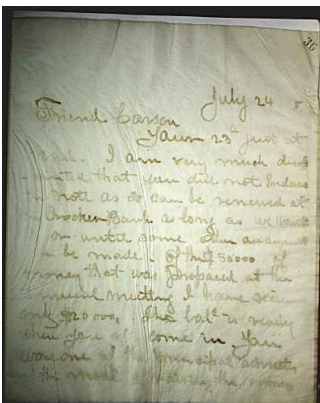 36
July 24
Friend Carson
Yours 23rd just at
I am very much disap
ointed that you did not endorse
note as it can be renewed at
Crocker Bank as long as we want
or until some other
be made. Of the $50000 of
money that was proposed at the
annual meeting I have
only $20000, the bal is ready
when you come in. You
was one of the principal
of the the